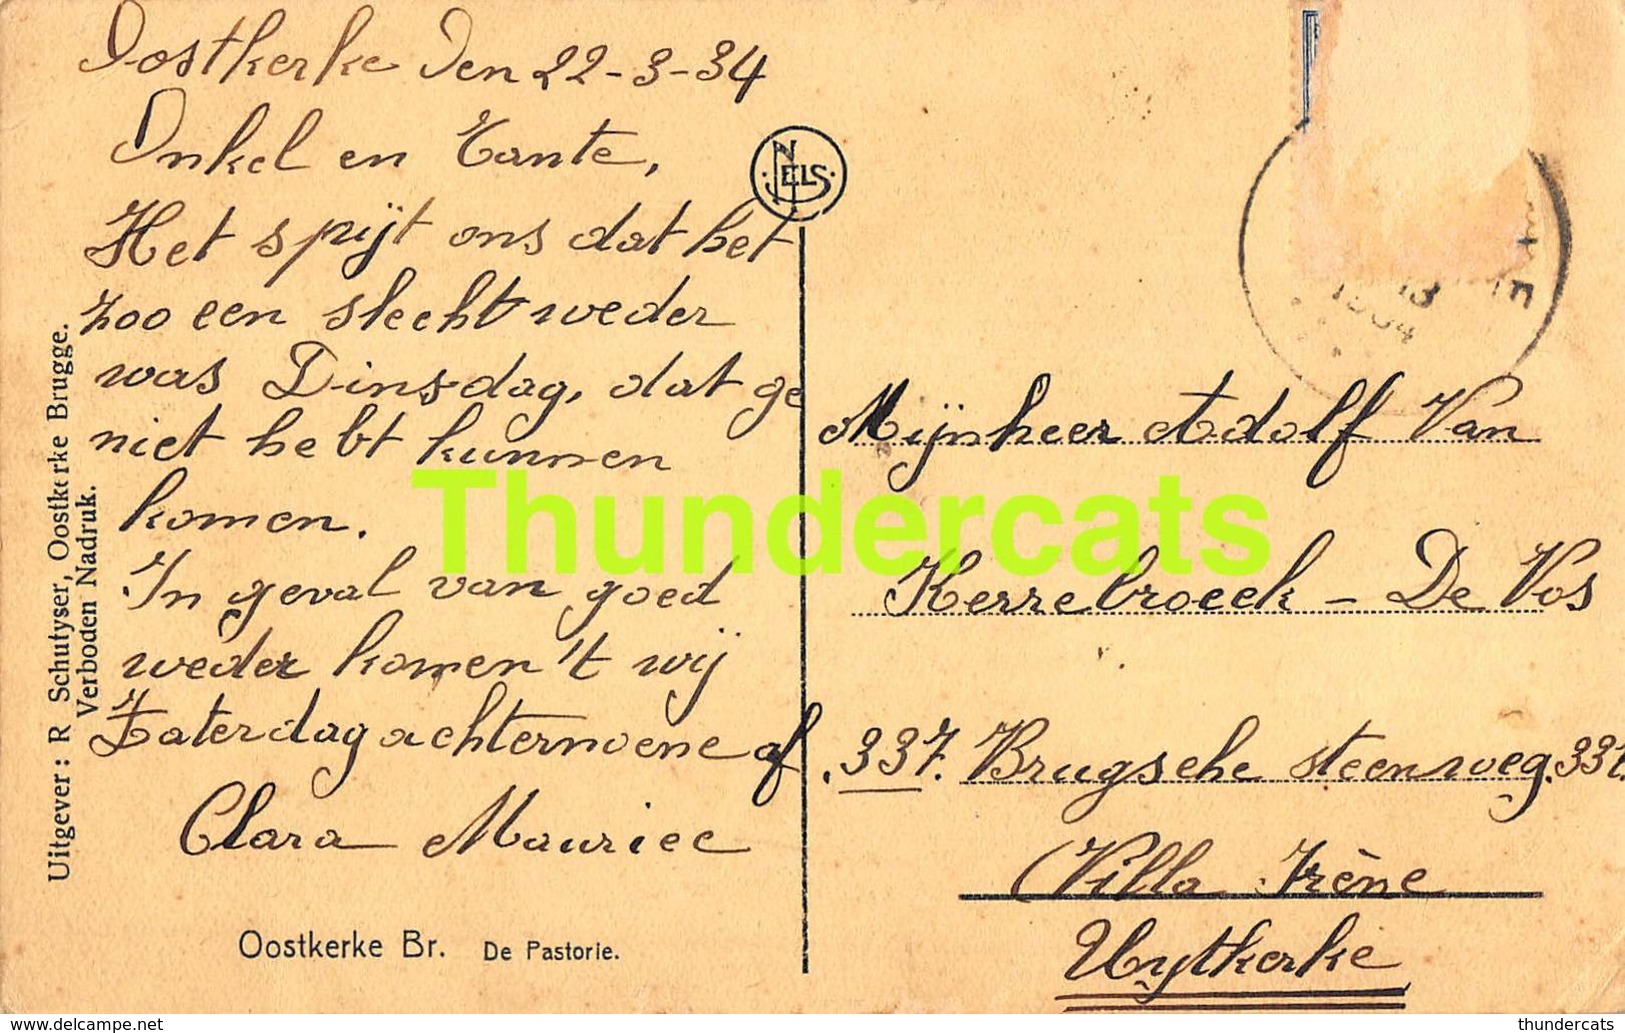 Oostkerke Den 22-3-34
Onkel en Tante,
Het spijt ons dat het
zoo een slecht weder
was Dinsdag, dat ge
niet hebt kunnen
komen.
In geval van goed
weder komen 't wij
Zaterdag achternoene af
Clara Maurice
Oostkerke Br. De Pastorie.
Uitgever: R Schutyser, Oostkerke Brugge.
Verboden Nadruk.
NELS
Mijnheer Adolf Van
Kerrebroeck - De Vos
.337. Brugsche steenweg. 331.
Villa Irène
Uytkerke
Thundercats
www.delcampe.net
thundercats